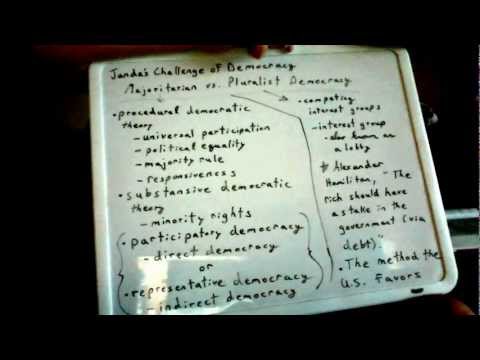 Janda's Challenge of Democracy
Majoritarian vs. Pluralist Democracy
• procedural democratic
theory
- universal participation
- political equality
- majority rule
- responsiveness
• substansive democratic
theory
- minority rights
• participatory democracy
- direct democracy
or
• representative democracy
- indirect democracy
• competing
interest groups
- interest group
• also known as
a lobby
Alexander
Hamilton, "The
rich should have
a stake in the
government (via
debt)."
• The method the
U.S. Favors